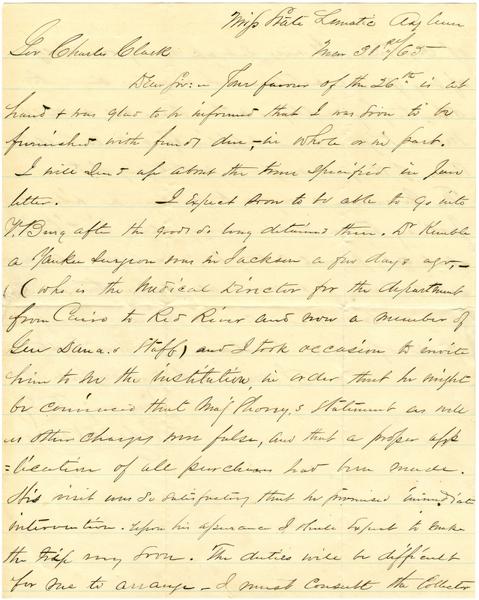 Miss State Lunatic Asylum
Gov Charles Clark Mar 31st/65
Dear Sir: - Your favor of the 26th is at
hand & was glad to be informed that I was soon to be
furnished with funds due - in whole or in part.
I will send up about the time specified in your
letter. I expect soon to be able to go into
V.Burg after the goods so long detained there. Dr Kimble
a Yankee Surgeon was in Jackson a few days ago, -
(who is the Medical Director for the department
from Cairo to Red River and now a member of
Gen Dana,s Staff) and I took occasion to invite
him to see the institution in order that he might
be convinced that Maj statement as well
as other charges were false, and that a proper app
=lication of all purchases had been made.
His visit was so satisfactory that he promised immediate
intervention. Upon his assurance I shall expect to make
the trip very soon. The duties will be difficult
for me to arrange - I must consult the Collector